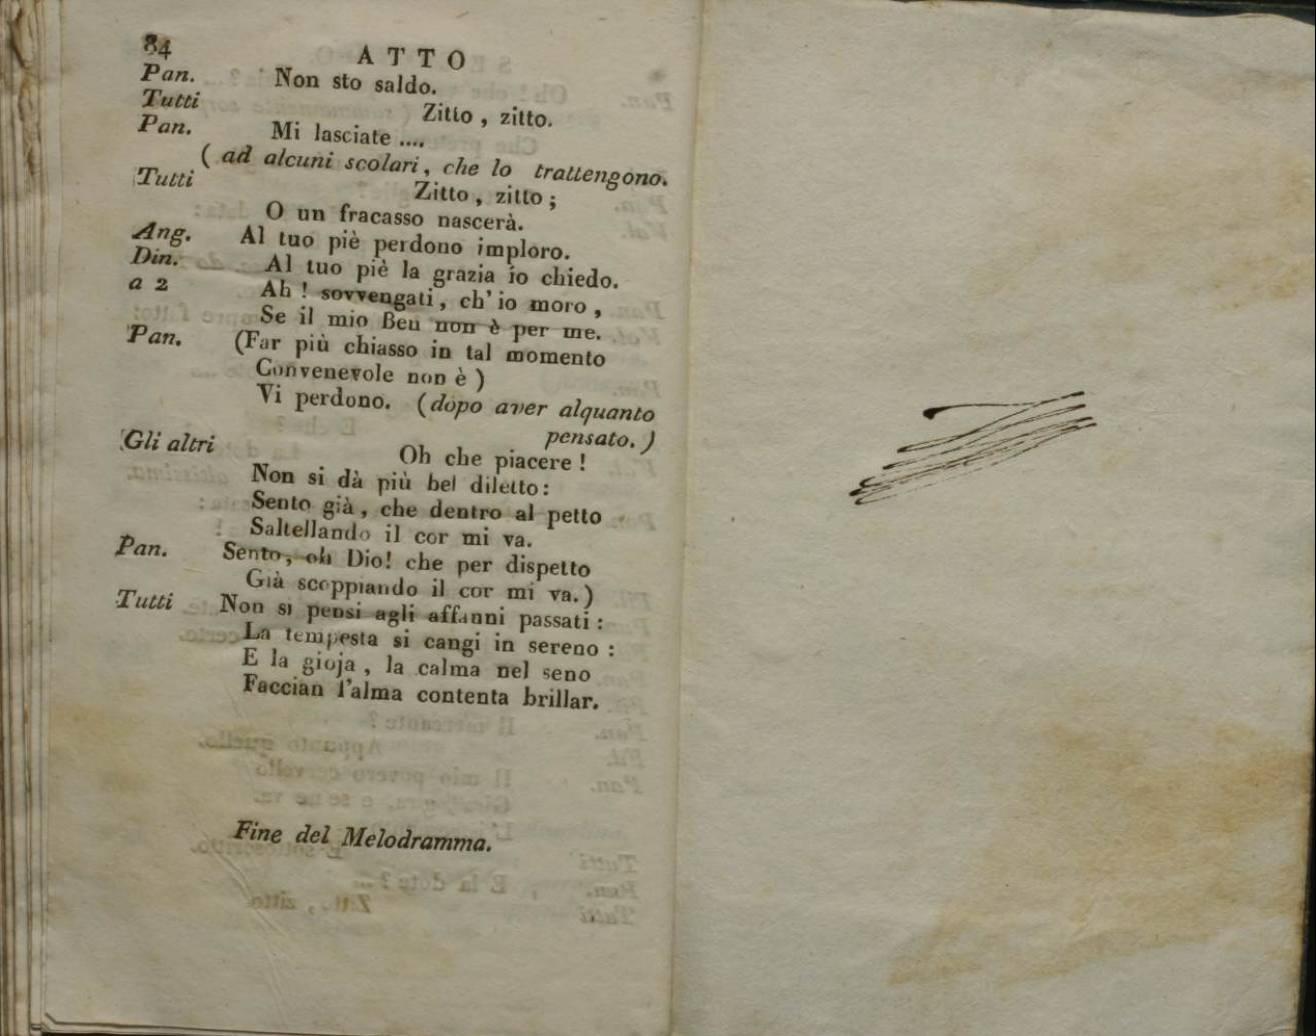 84
ATTO
Pan. Non sto saldo.
Tutti Zitto, zitto.
Pan. Mi lasciate ....
( ad alcuni scolari, che lo trattengono.
Tutti Zitto, zitto;
O un fracasso nascerà.
Ang. Al tuo piè perdono imploro.
Din. Al tuo piè la grazia io chiedo.
a 2 Ah! sovvengati, ch' io moro,
Se il mio Ben non è per me.
Pan. (Far più chiasso in tal momento
Convenevole non è )
Vi perdono. (dopo aver alquanto
pensato. )
Gli altri Oh che piacere!
Non si dà più bel diletto:
Sento già, che dentro al petto
Saltellando il cor mi va.
Pan. Sento, oh Dio! che per dispetto
Già scoppiando il cor mi va.)
Tutti Non si pensi agli affanni passati:
La tempesta si cangi in sereno:
E la gioja, la calma nel seno
Faccian l'alma contenta brillar.
Fine del Melodramma.